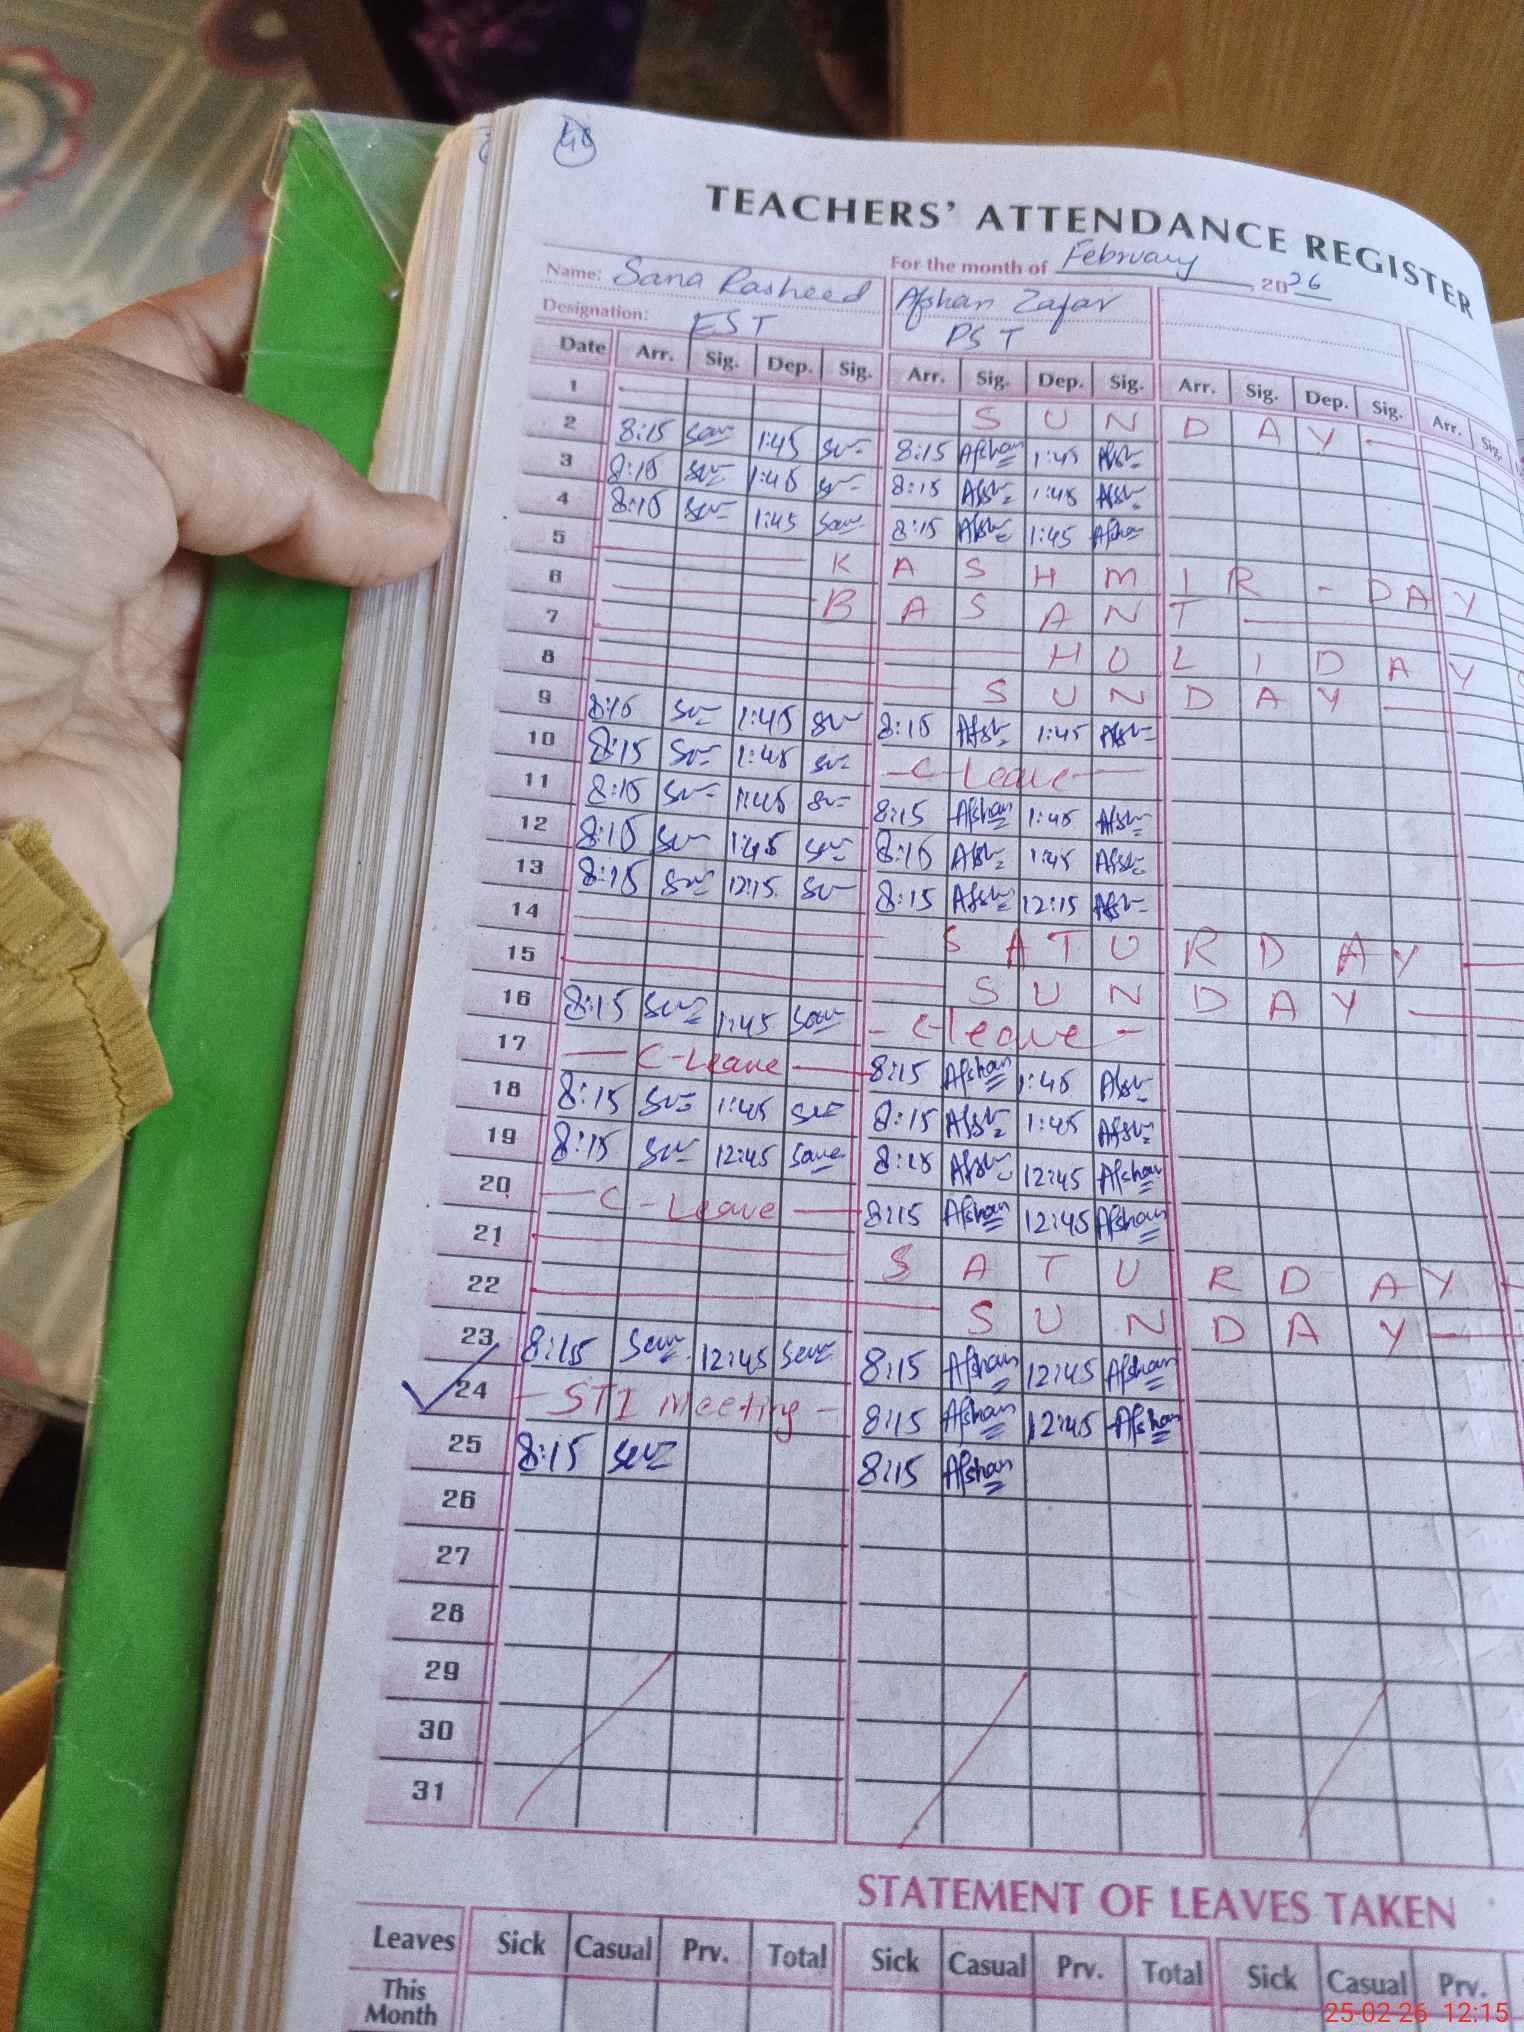 TEACHERS' ATTENDANCE REGISTER
For the month of February 2026
Name: Sana Rasheed Afshan Zafar
Designation: EST PST
Date Arr. Sig. Dep. Sig. Arr. Sig. Dep. Sig. Arr. Sig. Dep. Sig. Arr. Sig.
1 SUNDAY
2 8:15 1:45 8:15 Afshan 1:45
3 8:15 1:45 8:15 1:45
4 8:15 1:45 8:15 1:45 Afshan
5 KASHMIR - DAY
6 BASANT
7 HOLIDAY
8 SUNDAY
9 8:15 1:45 8:15 1:45
10 8:15 1:45 - C-Leave -
11 8:15 1:45 8:15 Afshan 1:45
12 8:15 1:45 8:15 1:45
13 8:15 12:15 8:15 12:15
14 SATURDAY
15 SUNDAY
16 8:15 1:45 - C-leave -
17 - C-Leave - 8:15 Afshan 1:45
18 8:15 1:45 8:15 1:45
19 8:15 12:45 8:15 12:45 Afshan
20 - C-Leave - 8:15 Afshan 12:45 Afshan
21 SATURDAY
22 SUNDAY
23 8:15 12:45 8:15 Afshan 12:45 Afshan
24 - STI Meeting - 8:15 Afshan 12:45 Afshan
25 8:15 8:15 Afshan
26
27
28
29
30
31
STATEMENT OF LEAVES TAKEN
Leaves Sick Casual Prv. Total Sick Casual Prv. Total Sick Casual Prv.
This
Month
25-02-26 12:15